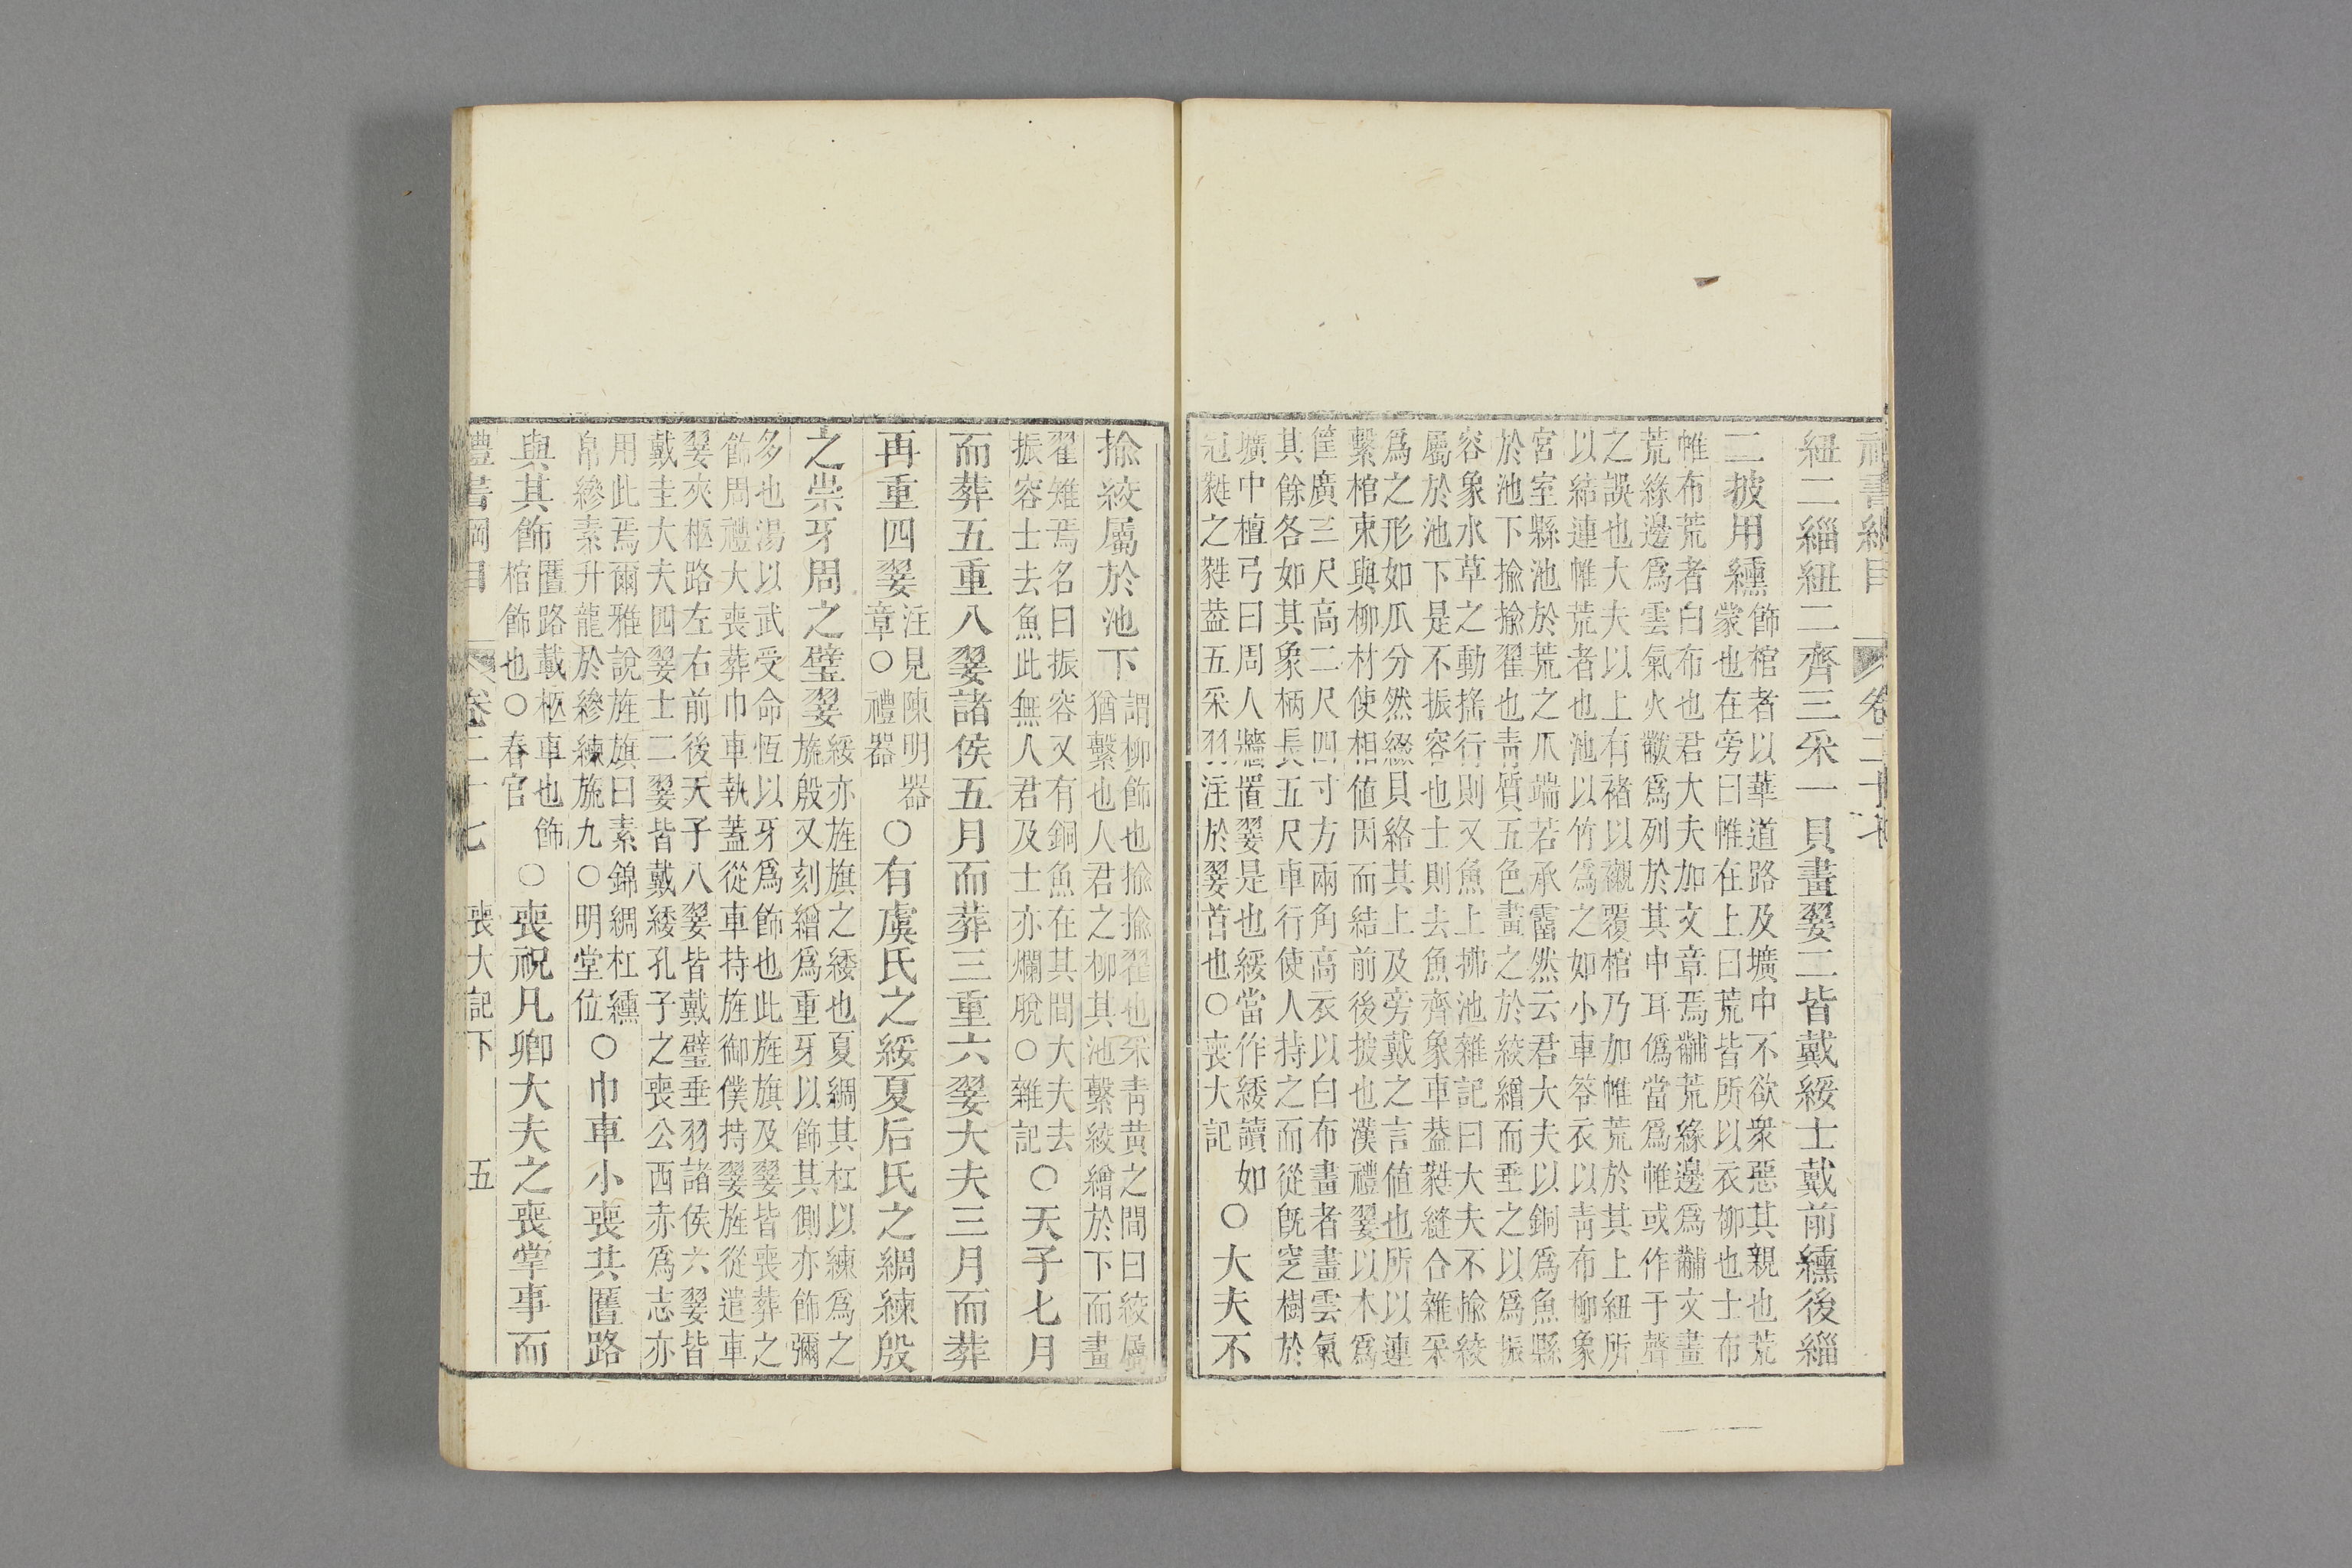 禮書綱目 卷二十七
紐二緇紐二齊三采一貝畫翣二皆戴綏士戴前纁後緇
二披用纁
飾棺者以華道路及壙中不欲衆惡其親也荒
蒙也在旁曰帷在上曰荒皆所以衣柳也士布
帷布荒者白布也君大夫加文章焉黼荒緣邊爲黼文畫
荒緣邊爲雲氣火黻爲列於其中耳僞當爲帷或作于聲
之誤也大夫以上有褚以襯覆棺乃加帷荒於其上紐所
以結連帷荒者也池以竹爲之如小車笭衣以靑布柳象
宮室縣池於荒之爪端若承霤然云君大夫以銅爲魚縣
於池下揄揄翟也靑質五色畫之於絞繒而垂之以爲振
容象水草之動搖行則又魚上拂池雜記曰大夫不揄絞
屬於池下是不振容也士則去魚齊象車葢蕤縫合雜采
爲之形如瓜分然綴貝絡其上及旁戴之言値也所以連
繫棺束與柳材使相値因而結前後披也漢禮翣以木爲
筐廣三尺高二尺四寸方兩角高衣以白布畫者畫雲氣
其餘各如其象柄長五尺車行使人持之而從旣窆樹於
壙中檀弓曰周人牆置翣是也綏當作緌讀如
冠蕤之蕤葢五采羽注於翣首也○喪大記
○大夫不
揄絞屬於池下
謂柳飾也揄揄翟也采靑黃之間曰絞屬
猶繫也人君之柳其池繫絞繒於下而畫
翟雉焉名曰振容又有銅魚在其間大夫去
振容士去魚此無人君及士亦爛脫○雜記
○天子七月
而葬五重八翣諸侯五月而葬三重六翣大夫三月而葬
再重四翣
注見陳明器
章○禮器
○有虞氏之綏夏后氏之綢練殷
之崇牙周之璧翣
綏亦旌旗之緌也夏綢其杠以練爲之
旒殷又刻繒爲重牙以飾其側亦飾彌
多也湯以武受命恆以牙爲飾也此旌旗及翣皆喪葬之
飾周禮大喪葬巾車執蓋從車持旌御僕持翣旌從遣車
翣夾柩路左右前後天子八翣皆戴璧垂羽諸侯六翣皆
戴圭大夫四翣士二翣皆戴緌孔子之喪公西赤爲志亦
用此焉爾雅說旌旗曰素錦綢杠纁
帛縿素升龍於縿練旒九○明堂位
○巾車小喪共匶路
與其飾
匶路載柩車也飾
棺飾也○春官
○喪祝凡卿大夫之喪掌事而
禮書綱目 卷二十七 喪大記下 五